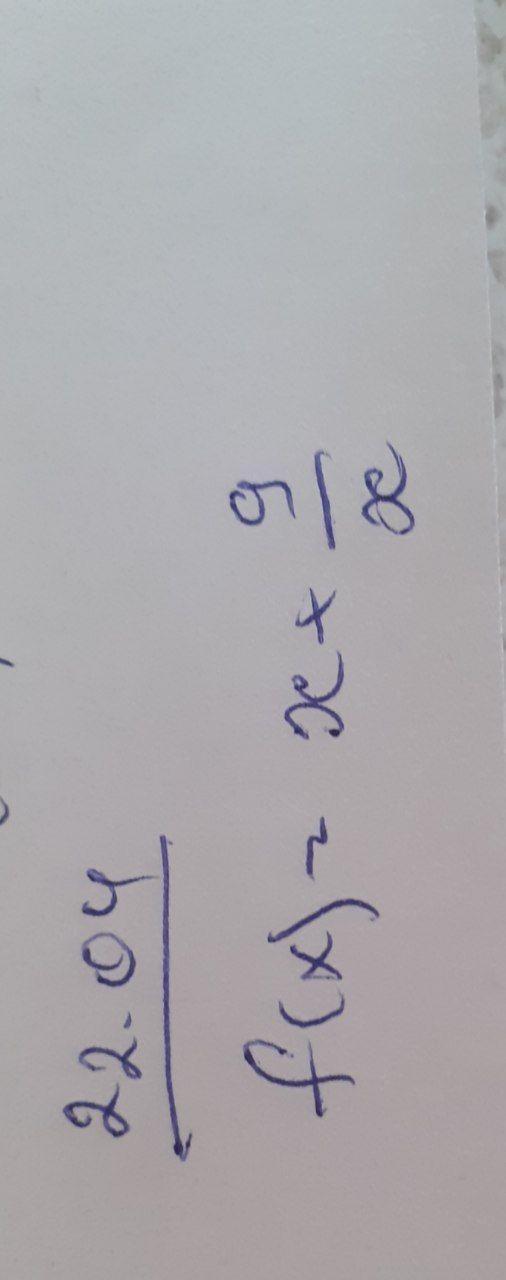 22.04
f(x) = x + 9/x